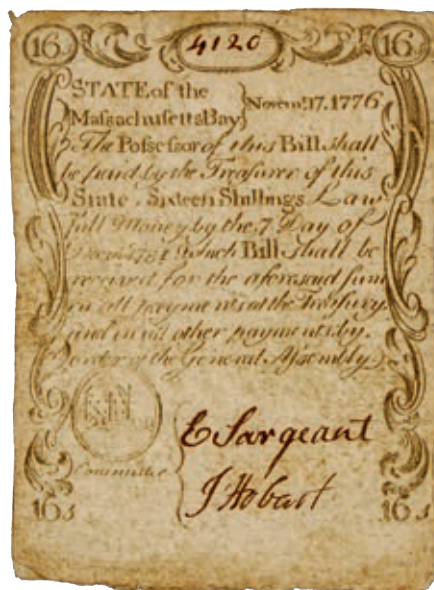 16 4120 16
STATE of the
Massachusetts Bay } Novem! 17. 1776
The Possessor of this Bill shall
be paid by the Treasurer of this
State, Sixteen Shillings Law
full Money by the 7 Day of
1784 which Bill shall be
received for the aforesaid sum
in all payments at the Treasury
and in all other payments by
order of the General Assembly
Committee
E Sargeant
J Hobart
16s 16s